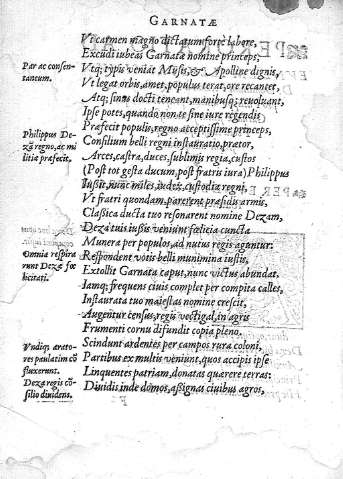 GARNATÆ
Vt carmen magno dictatum forte labore,
Excudi iubeas Garnata nomine princeps,
Vtq; typis veniat Musis, & Apolline dignis,
Par ac consen-
taneum.
Vt legat orbis, amet, populus terat, ore recantet,
Atq; sinus docti teneant, manibusq; reuoluant,
Ipse potes, quando non te sine iure regendis
Præfecit populis, regno acceptissime princeps,
Consilium belli regni instauratio, prætor,
Philippus De-
zã regno, ac mi
litiæ præfecit,
Arces, castra, duces, sublimis regia, custos
(Post tot gesta ducum, post fratris iura) Philippus
Iußit, nunc miles, iudex, custodia regni,
Vt fratri quondam, parerent præsulis armis.
Classica ducta tuo resonarent nomine Dezam,
Deza tuis iußis veniunt fœlicia cuncta
Munera per populos, ad nutus regis aguntur:
Omnia respira
runt Dezæ fœ
licitati.
Respondent votis belli munimina iustis,
Extollit Garnata caput, nunc victus abundat,
Iamq; frequens ciuis complet per compita calles,
Instaurata tuo maiestas nomine crescit,
Augentur census, regis vectigal, in agris
Frumenti cornu difundit copia pleno.
Vndiq; arato-
res paulatim cõ
fluxerunt.
Scindunt ardentes per campos rura coloni,
Partibus ex multis veniunt, quos accipis ipse
Linquentes patriam, donatas quærere terras:
Deza regis cõ-
silio diuidens.
Diuidis inde domos, aßignas ciuibus agros,